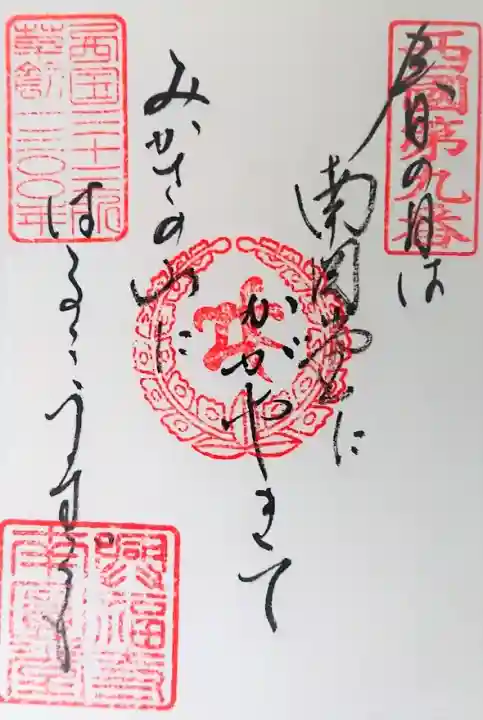 西國第九番
春の日は
南圓堂に
かがやきて
みかさの山に
はるゝうす
西国三十三所
草創一三〇〇年
興福寺
南圓堂